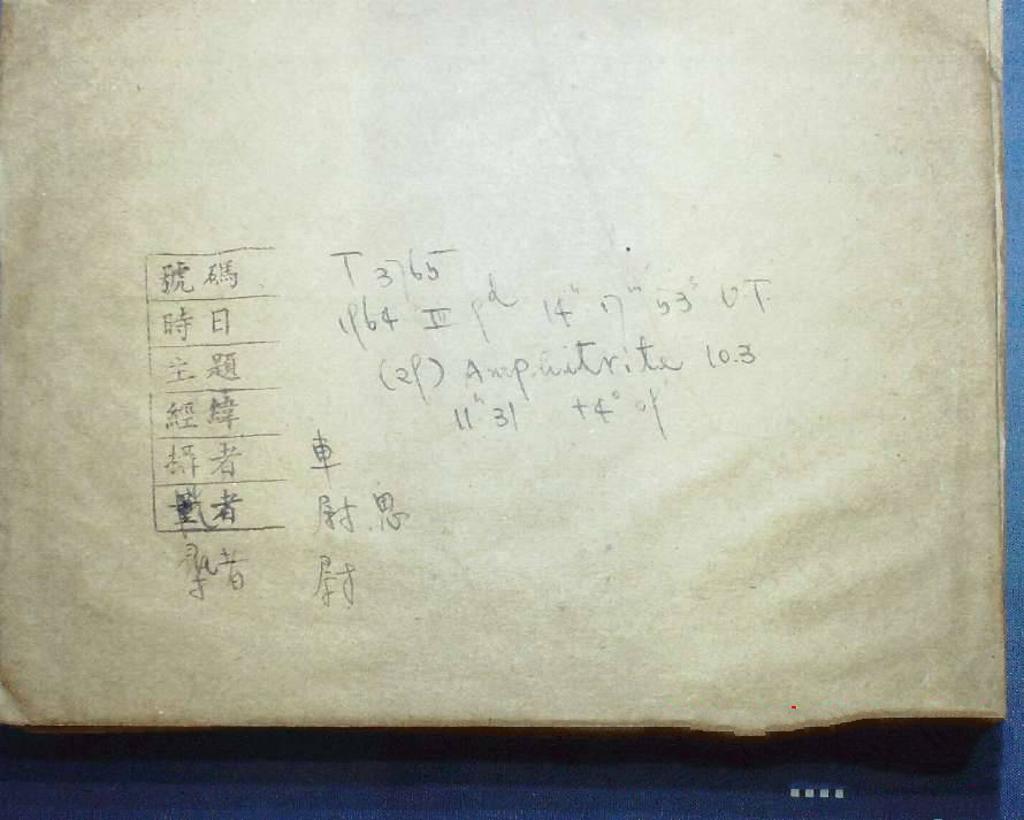 號碼 T 3765
時日 1964 III 9ᵈ 14ʰ 17ᵐ 53ˢ UT
主題 (29) Amphitrite 10.3
經緯 11ʰ 31 +4° 09'
攝者 車
者 尉 思
者 尉